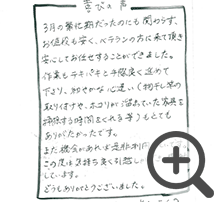 喜びの声
3月の繁忙期だったのにも関わらず、
お値段も安く、ベテランの方に来て頂き
安心してお任せすることができました。
作業もテキパキと手際良く進めて
下さり、細やかな心遣い(物干し竿の
取り付けや、ホコリが溜まっていた家具を
掃除する時間をくれる等)もとても
ありがたかったです。
また機会があれば是非
この度は気持ち良く引越し
しています。
どうもありがとうございました。